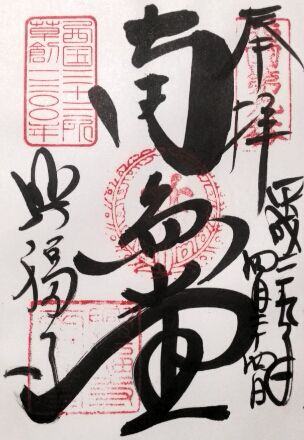 奉拝
平成二十九年
四月二十四日
南円堂
興福寺
西国三十三所
草創一三〇〇年